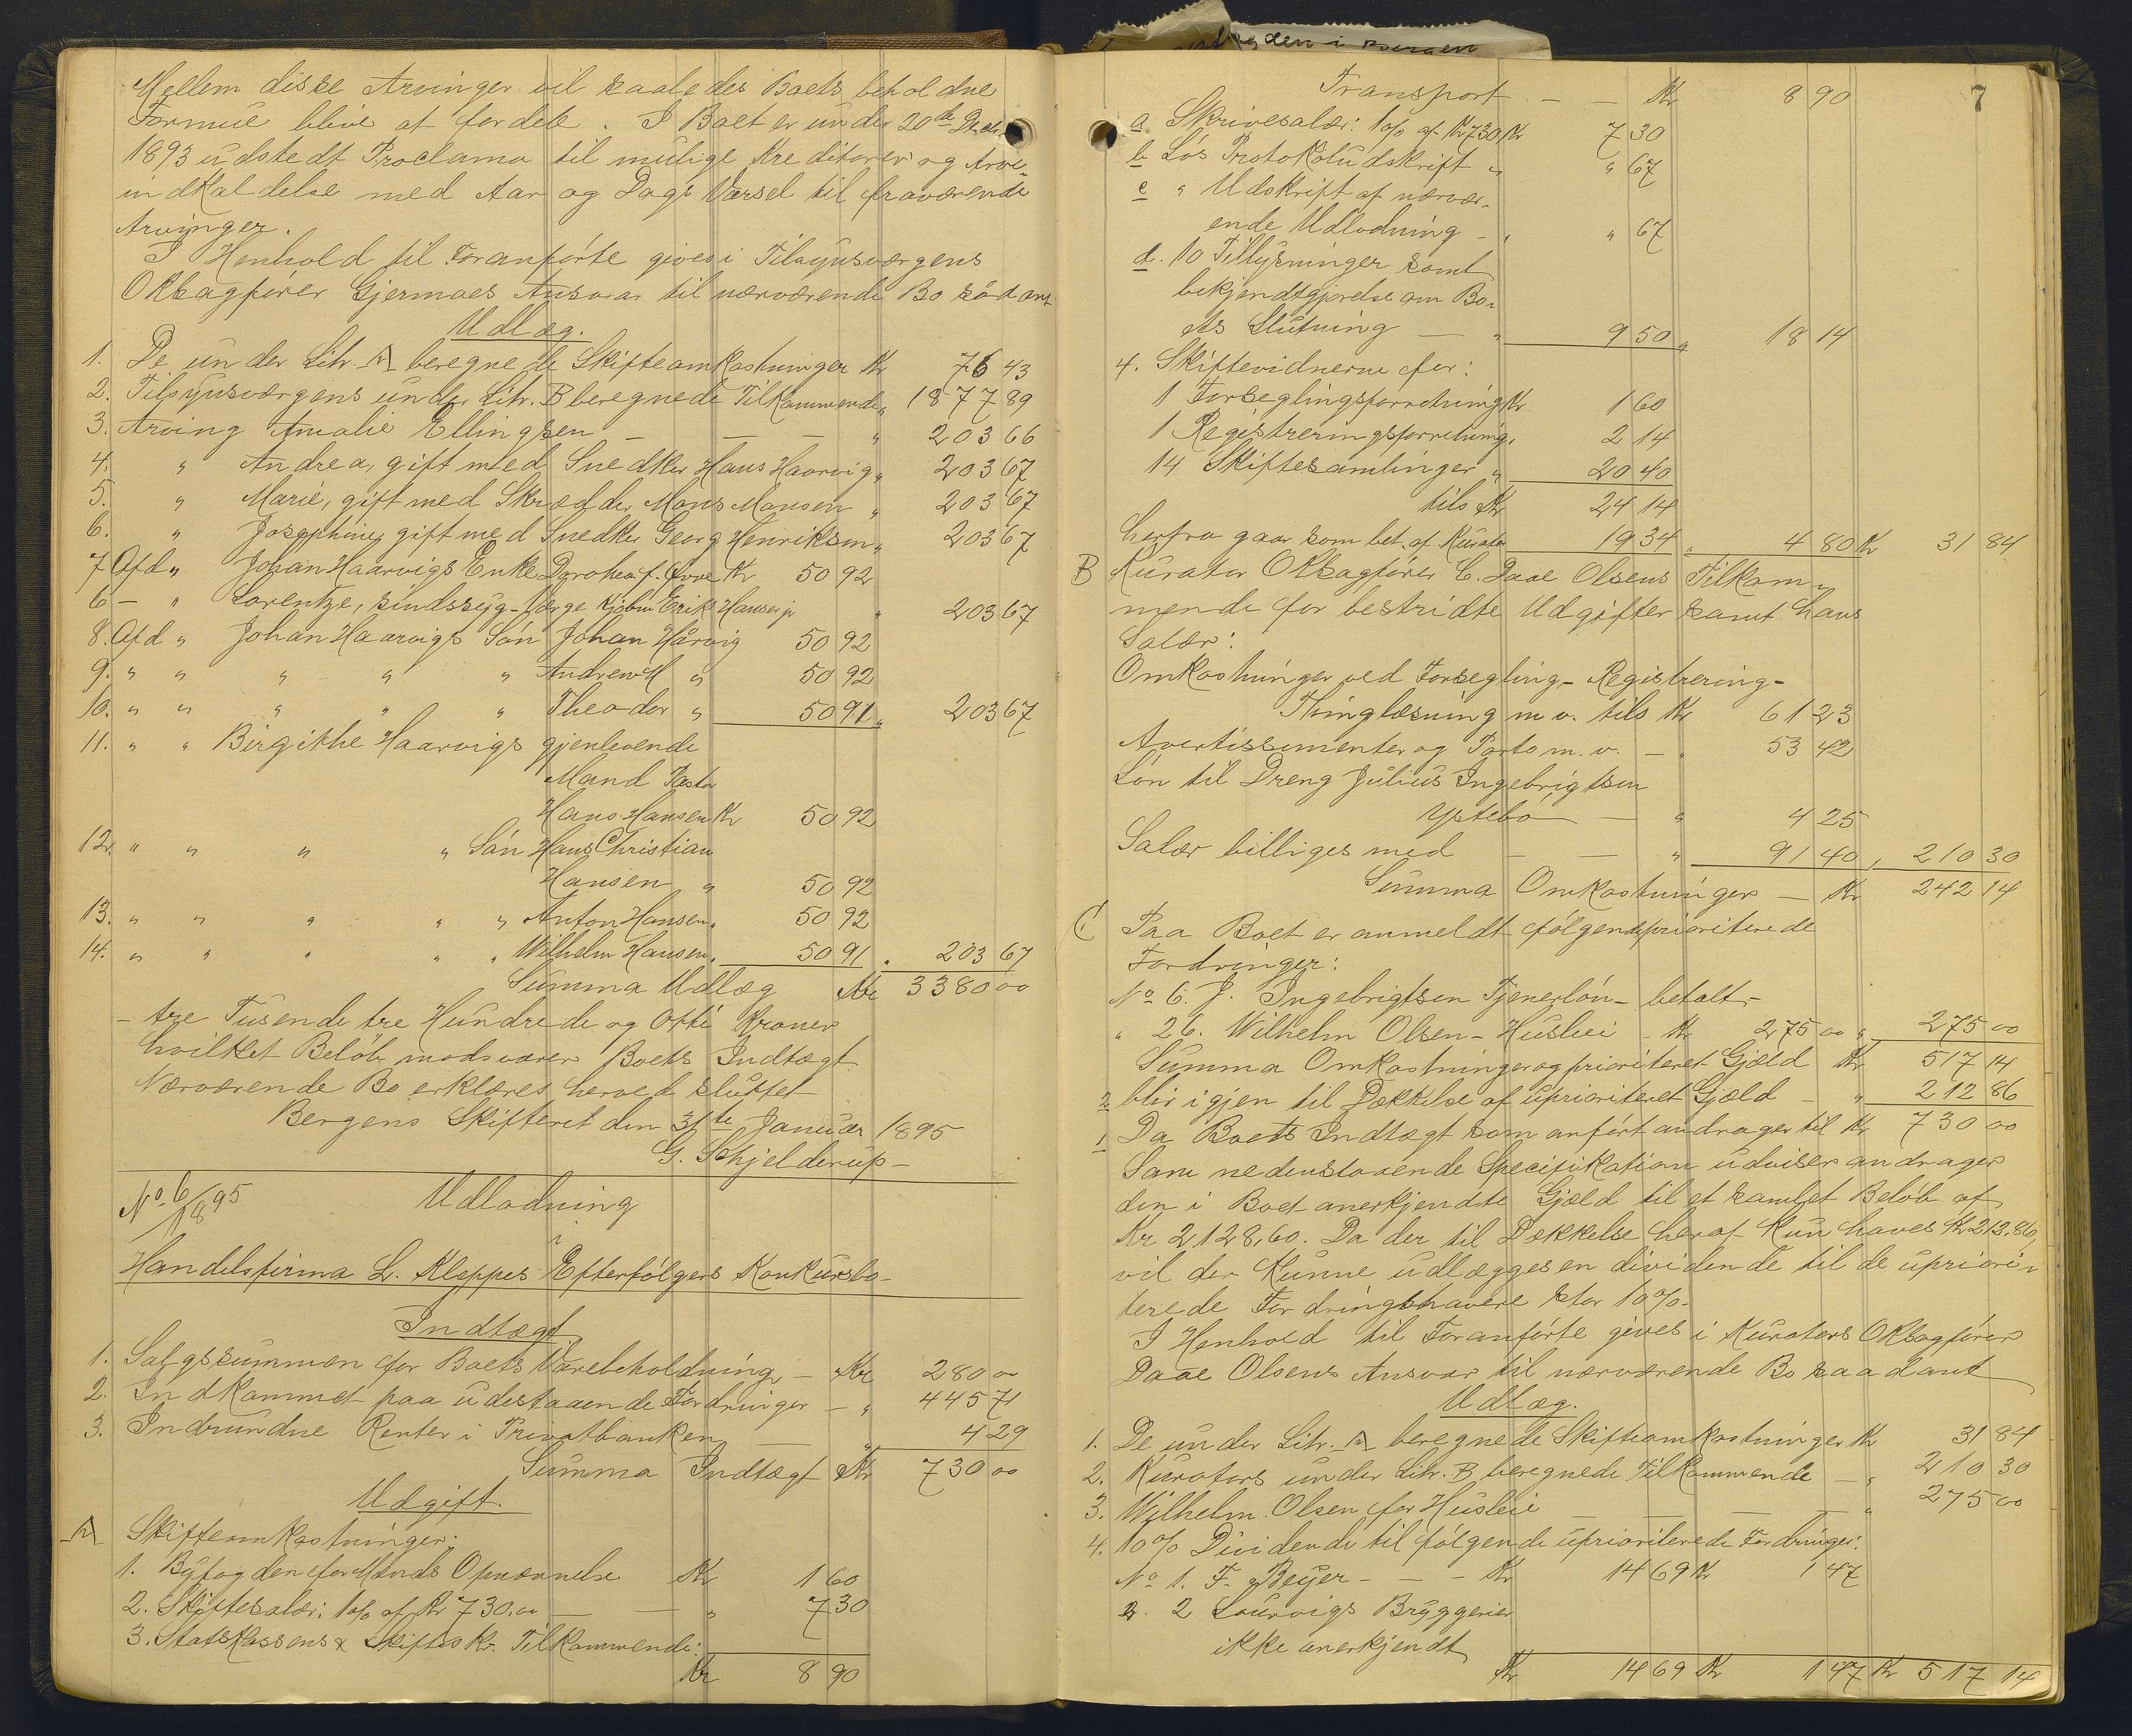 Mellem disse Arvinger vil saaledes Boets beholdne
Formue blive at fordele. I Boet er under 20de
1893 udstedt Proclama til mulige Kreditorer og Arve-
indkaldelse med Aar og Dags Varsel til fraværende
Arvinger.
I Henhold til Foranførte gives i Tilsynsværgens
ORsagfører Gjermoes Ansvar til nærværende Bo sådant
Udlæg.
1. De under Litr. A beregnede Skifteomkostninger Kr 76 43
2. Tilsynsværgens under Litr. B beregnede Tilkommende " 1877 89
3. Arving Amalie Ellingsen — — — " 203 66
4. " Andrea, gift med Snedker Hans Haarvig " 203 67
5. " Marie, gift med Skrædder Mons Monsen " 203 67
6. " Josephine, gift med Snedker Georg Henriksen " 203 67
7 Afd " Johan Haarvigs Enke Dorothea f. Kr 50 92
6 — " Lorentze, sindssyg - Værge Kjøbm Erik Hansen jr " 203 67
8. Afd " Johan Haarvigs Søn Johan Hårvig 50 92
9. " " " " " Andrew H " 50 92
10. " " " " " Theodor " 50 91 " 203 67
11. " " Birgithe Haarvigs gjenlevende
Mand Pastor
Hans Hansen Kr 50 92
12. " " " " Søn Hans Christian
Hansen " 50 92
13. " " " " " Anton Hansen " 50 92
14. " " " " " Wilhelm Hansen " 50 91 " 203 67
Summa Udlæg Kr 3380 00
- tre Tusende tre Hundrede og Otti Kroner
hvilket Beløb modsvarer Boets Indtægt.
Nærværende Bo erklæres herved sluttet
Bergens Skifteret den 31te Januar 1895
G. Schjelderup -
No. 6/1895 Udlodning
i
Handelsfirma L. Kleppes Efterfølgers Konkursbo -
Indtægt
1. Salgssummen for Boets Varebeholdning — Kr 280 00
2. Indkommet paa udestaaende Fordringer — " 445 71
3. Indvundne Renter i Privatbanken — " 4 29
Summa Indtægt Kr 730 00
Udgift.
A Skifteomkostninger:
1. Byfogden for Mænds Opnævnelse Kr 1 60
2. Skiftesalær: 1 o/o af Kr 730,00 — — " 7 30
3. Statskassens & Skiftesk. Tilkommende:
Kr 8 90
7
Transport — — Kr 8 90
a Skrivesalær: 1 o/o af Kr 730 Kr 7 30
b Løs Protokoludskrift " " 67
c " Udskrift af nærvær-
ende Udlodning — " " 67
d. 10 Tillysninger samt
bekjendtgjørelse om Bo-
ets Slutning — " 9 50 " 18 14
4. Skiftevidnerne for:
1 Forseglingsforretning Kr 1 60
1 Registreringsforretning " 2 14
14 Skiftesamlinger " 20 40
tils Kr 24 14
herfra gaar som bet. af Kurator 19 34 " 4 80 Kr 31 84
B Kurator ORsagfører C. Daae Olsens Tilkom-
mende for bestridte Udgifter samt hans
Salær:
Omkostninger ved Forsegling - Registrering -
Thinglæsning m v. tils Kr 61 23
Avertissementer og Porto m. v. — " 53 42
Løn til Dreng Julius Ingebrigtsen
Ystebø — " 4 25
Salær billiges med — — " 91 40 " 210 30
Summa Omkostninger — Kr 242 14
C Paa Boet er anmeldt følgende prioriterede
Fordringer:
No 6. J. Ingebrigtsen Tjenerløn - betalt -
" 26. Wilhelm Olsen - Husleie - Kr 275 00 " 275 00
Summa Omkostninger og prioriteret Gjæld Kr 517 14
2 blir igjen til Dækkelse af uprioriteret Gjæld — " 212 86
1 Da Boets Indtægt som anført andrager til Kr 730 00
Som nedenstaaende Specifikation udviser andrager
den i Boet anerkjendte Gjæld til et samlet Beløb af
Kr 2128,60. Da der til Dækkelse heraf kun haves Kr 212,86,
vil der kunne udlægges en dividende til de upriori-
terede Fordringshavere stor 10 o/o -
I Henhold til Foranførte gives i Kurators ORsagfører
Daae Olsens Ansvar til nærværende Bo saadant
Udlæg.
1. De under Litr. A beregnede Skifteomkostninger Kr 31 84
2. Kurators under Litr. B beregnede Tilkommende — " 210 30
3. Wilhelm Olsen for Husleie — — — " 275 00
4. 10 o/o Dividende til følgende uprioriterede Fordringer:
No 1. F. Beyer - — - Kr 14 69 Kr 1 47
" 2 Bryggerier
ikke anerkjendt
Kr 14 69 Kr 1 47 Kr 517 14